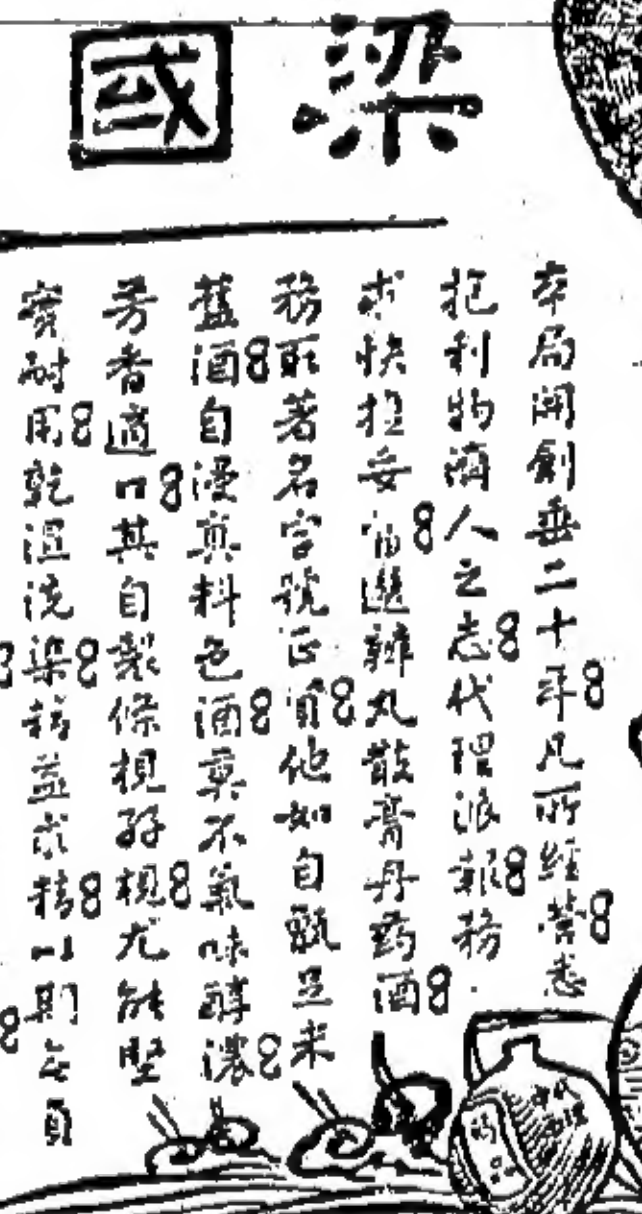 梁國
本局開創垂二十年凡所經營悉
把利物濟人之志代理派報務
求快捷妥選辦丸散膏丹葯酒
務取著名字號正貨他如自甑豆米
舊酒自浸真料色酒莫不氣味醇濃
芳香適口其自製條梘孖梘尤能堅
實耐用乾濕洗染精益求精以期無負